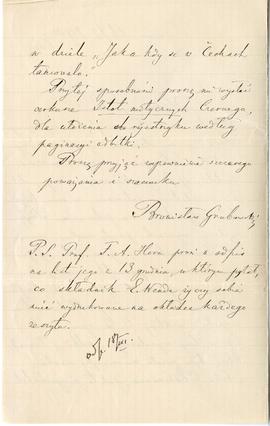 w dziele „Jak a kdy se v Čechach
tancovalo."
Przy tej sposobności proszę mi wysłać
arkusze Istot mitycznych Cernego,
dla ułożenia rejestryku według
paginacyi odbitki.
Proszę przyjąć zapewnienie szczerego
poważania i szacunku
Bronisław Grabowski
P.S. Prof. F. A. Hora prosi o odpis
na list jego z 13 grudnia, w którym pytał,
co składnik E. Wende życzy sobie
mieć wydrukowane na okładce każdego
zeszytu.
odp. 18/III.